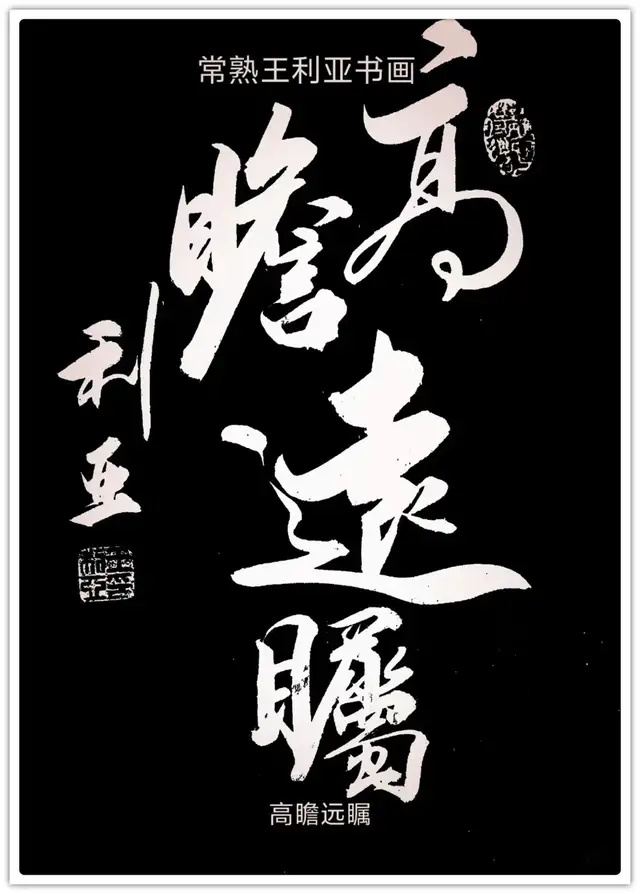 常熟王利亚书画
高瞻遠矚
利亚
高瞻远瞩